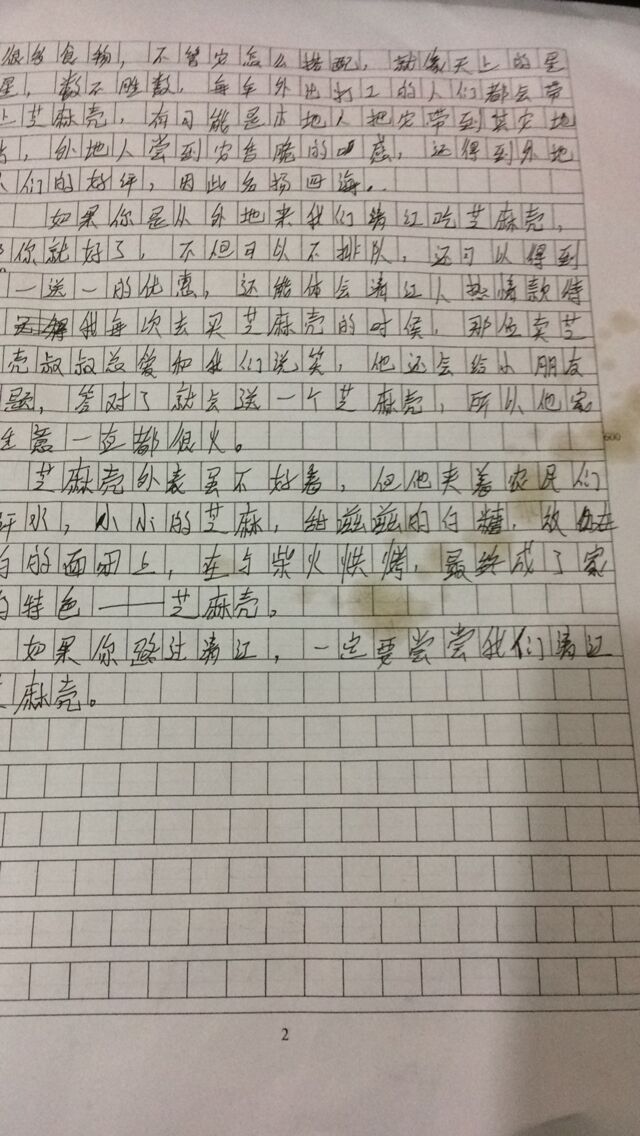 很多食物，不管它怎么搭配，就像天上的星
星，数不胜数，每年外出打工的人们都会带
上芝麻壳，有可能是本地人把它带到其它地
，外地人尝到它香脆的口感，还得到外地
人们的好评，因此名扬四海。
如果你是从外地来我们清江吃芝麻壳，
你就好了，不但可以不排队，还可以得到
一送一的优惠，还能体会清江人热情款待
我每次去买芝麻壳的时侯，那位卖芝
壳叔叔总爱和我们说笑，他还会给小朋友
题，答对了就会送一个芝麻壳，所以他家
生意一直都很火。
芝麻壳外表虽不好看，但他夹着农民们
汗水，小小的芝麻，甜滋滋的白糖，放在
白的面团上，在与柴火烘烤，最终成了家
的特色——芝麻壳。
如果你路过清江，一定要尝尝我们清江
麻壳。
600
2